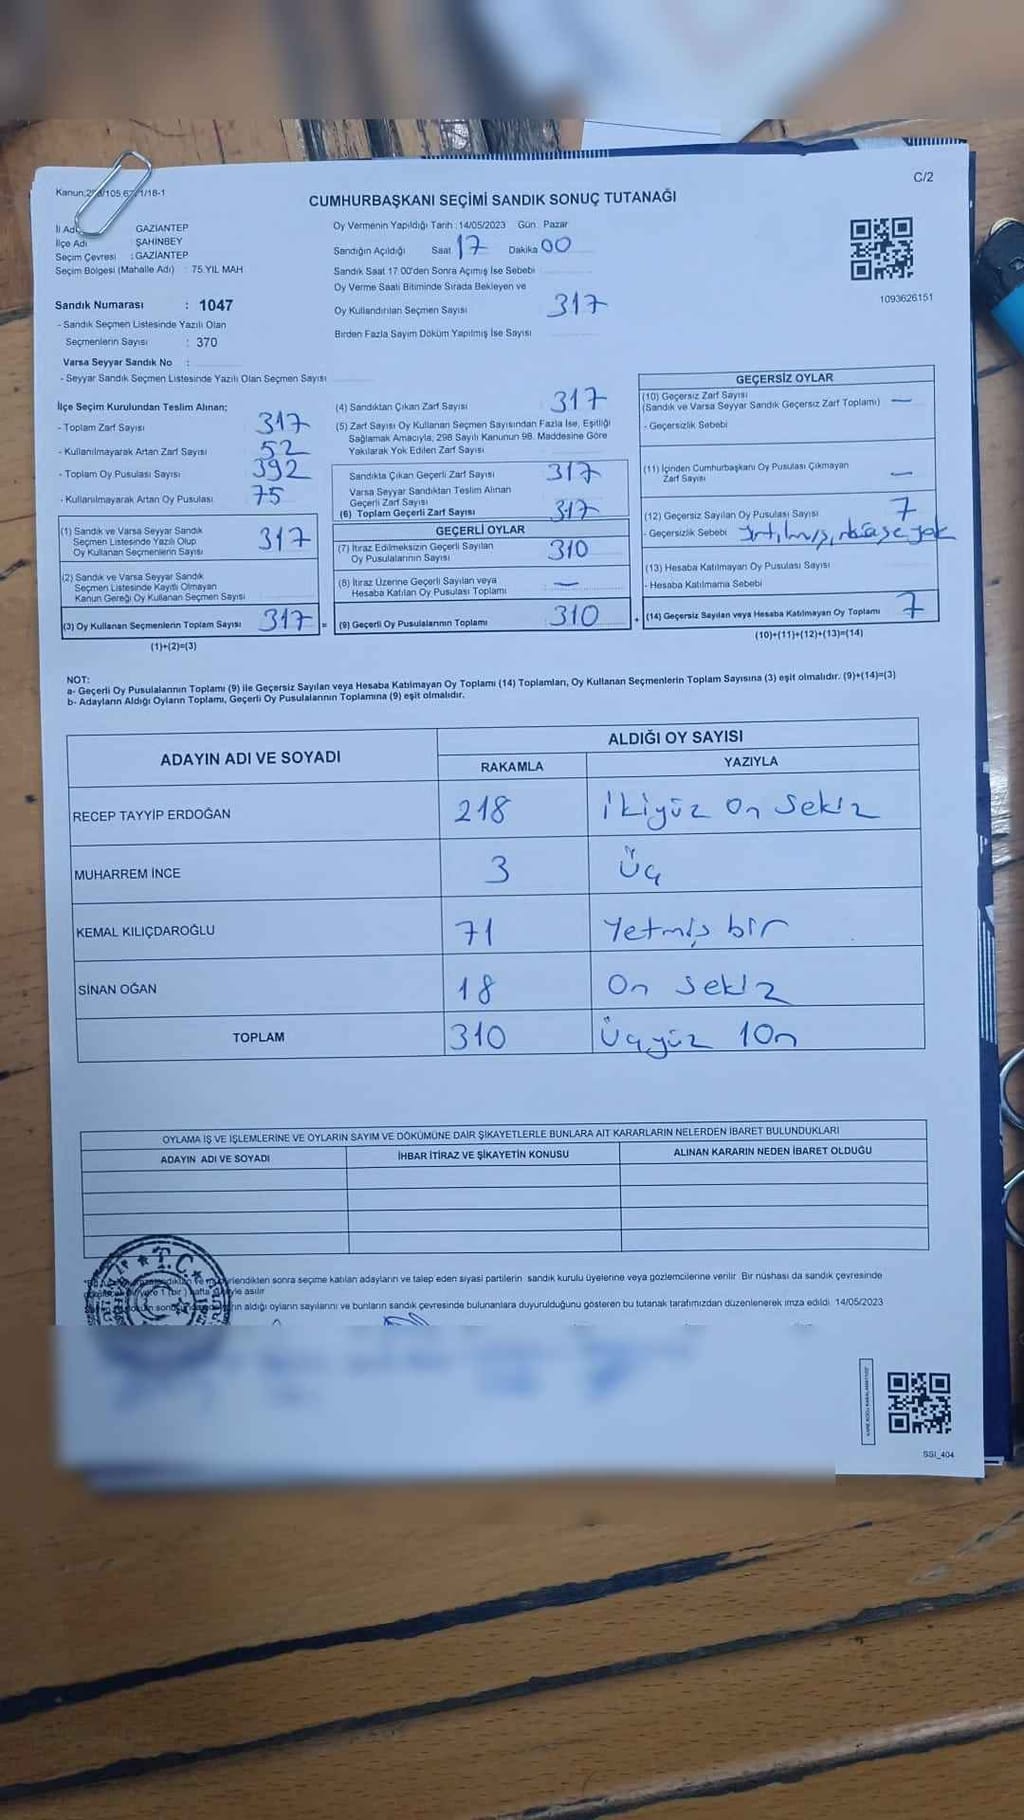 C/2
CUMHURBAŞKANI SEÇİMİ SANDIK SONUÇ TUTANAĞI
İl Adı GAZİANTEP
İlçe Adı : ŞAHİNBEY
Seçim Çevresi : GAZİANTEP
Seçim Bölgesi (Mahalle Adı) : 75.YIL MAH
Sandık Numarası : 1047
- Sandık Seçmen Listesinde Yazılı Olan
Seçmenlerin Sayısı : 370
Varsa Seyyar Sandık No :
- Seyyar Sandık Seçmen Listesinde Yazılı Olan Seçmen Sayısı
Oy Vermenin Yapıldığı Tarih : 14/05/2023 Gün : Pazar
Sandığın Açıldığı Saat 17 Dakika 00
Sandık Saat 17.00'den Sonra Açmış İse Sebebi
Oy Verme Saati Bitiminde Sırada Bekleyen ve
Oy Kullandırılan Seçmen Sayısı 317
Birden Fazla Sayım Döküm Yapılmış İse Sayısı
1093626151
İlçe Seçim Kurulundan Teslim Alınan;
- Toplam Zarf Sayısı 317
- Kullanılmayarak Artan Zarf Sayısı 52
- Toplam Oy Pusulası Sayısı 392
- Kullanılmayarak Artan Oy Pusulası 75
(1) Sandık ve Varsa Seyyar Sandık
Seçmen Listesinde Yazılı Olup
Oy Kullanan Seçmenlerin Sayısı 317
(2) Sandık ve Varsa Seyyar Sandık
Seçmen Listesinde Kayıtlı Olmayan
Kanun Gereği Oy Kullanan Seçmen Sayısı
(3) Oy Kullanan Seçmenlerin Toplam Sayısı 317 =
(1)+(2)=(3)
(4) Sandıktan Çıkan Zarf Sayısı 317
(5) Zarf Sayısı Oy Kullanan Seçmen Sayısından Fazla İse, Eşitliği
Sağlamak Amacıyla, 298 Sayılı Kanunun 98. Maddesine Göre
Yakılarak Yok Edilen Zarf Sayısı
Sandıkta Çıkan Geçerli Zarf Sayısı 317
Varsa Seyyar Sandıktan Teslim Alınan
Geçerli Zarf Sayısı
(6) Toplam Geçerli Zarf Sayısı 317
GEÇERLİ OYLAR
(7) İtiraz Edilmeksizin Geçerli Sayılan
Oy Pusulalarının Sayısı 310
(8) İtiraz Üzerine Geçerli Sayılan veya
Hesaba Katılan Oy Pusulası Toplamı —
(9) Geçerli Oy Pusulalarının Toplamı 310 +
GEÇERSİZ OYLAR
(10) Geçersiz Zarf Sayısı
(Sandık ve Varsa Seyyar Sandık Geçersiz Zarf Toplamı) —
- Geçersizlik Sebebi
(11) İçinden Cumhurbaşkanı Oy Pusulası Çıkmayan
Zarf Sayısı —
(12) Geçersiz Sayılan Oy Pusulası Sayısı 7
- Geçersizlik Sebebi Yırtılmış, yok
(13) Hesaba Katılmayan Oy Pusulası Sayısı
- Hesaba Katılmama Sebebi
(14) Geçersiz Sayılan veya Hesaba Katılmayan Oy Toplamı 7
(10)+(11)+(12)+(13)=(14)
NOT:
a- Geçerli Oy Pusulalarının Toplamı (9) ile Geçersiz Sayılan veya Hesaba Katılmayan Oy Toplamı (14) Toplamları, Oy Kullanan Seçmenlerin Toplam Sayısına (3) eşit olmalıdır. (9)+(14)=(3)
b- Adayların Aldığı Oyların Toplamı, Geçerli Oy Pusulalarının Toplamına (9) eşit olmalıdır.
ADAYIN ADI VE SOYADI ALDIĞI OY SAYISI
RAKAMLA YAZIYLA
RECEP TAYYİP ERDOĞAN 218 ikiyüz on sekiz
MUHARREM İNCE 3 Üç
KEMAL KILIÇDAROĞLU 71 Yetmiş bir
SİNAN OĞAN 18 On sekiz
TOPLAM 310 Üçyüz 10n
OYLAMA İŞ VE İŞLEMLERİNE VE OYLARIN SAYIM VE DÖKÜMÜNE DAİR ŞİKAYETLERLE BUNLARA AİT KARARLARIN NELERDEN İBARET BULUNDUKLARI
ADAYIN ADI VE SOYADI İHBAR İTİRAZ VE ŞİKAYETİN KONUSU ALINAN KARARIN NEDEN İBARET OLDUĞU
T.C.
sonra seçime katılan adayların ve talep eden siyasi partilerin sandık kurulu üyelerine veya gözlemcilerine verilir. Bir nüshası da sandık çevresinde
asılır
aldığı oyların sayılarını ve bunların sandık çevresinde bulunanlara duyurulduğunu gösteren bu tutanak tarafımızdan düzenlenerek imza edildi. 14/05/2023
SSI_404